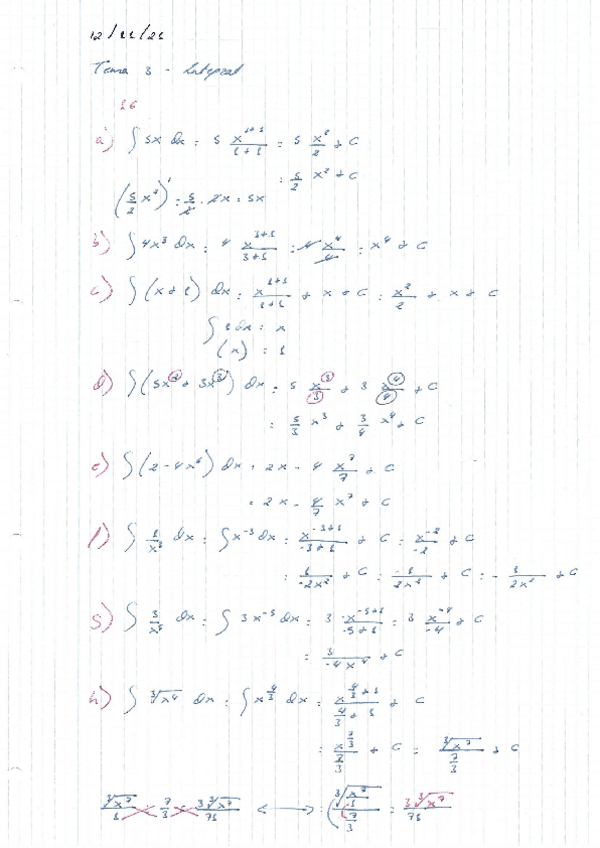 12/11/21
Tema 3 - Integral
16
a) ∫ 5x dx = 5 x^(1+1)/(1+1) = 5 x²/2 + C
= 5/2 x² + C
(5/2 x²)' = 5/2 · 2x = 5x
b) ∫ 4x³ dx = 4 x^(3+1)/(3+1) = 4 x⁴/4 = x⁴ + C
c) ∫ (x + 1) dx = x^(1+1)/(1+1) + x + C = x²/2 + x + C
∫ 1 dx = x
(x) = 1
d) ∫ (5x² + 3x³) dx = 5 x³/3 + 3 x⁴/4 + C
= 5/3 x³ + 3/4 x⁴ + C
e) ∫ (2 - 4x⁶) dx = 2x - 4 x⁷/7 + C
= 2x - 4/7 x⁷ + C
f) ∫ 1/x³ dx = ∫ x^(-3) dx = x^(-3+1)/(-3+1) + C = x^(-2)/-2 + C
= 1/(-2x²) + C = -1/(2x²) + C = - 1/(2x²) + C
g) ∫ 3/x⁵ dx = ∫ 3x^(-5) dx = 3 x^(-5+1)/(-5+1) = 3 x^(-4)/-4 + C
= 3/(-4x⁴) + C
h) ∫ ³√x⁴ dx = ∫ x^(4/3) dx = x^(4/3+1)/(4/3+1) + C
= x^(7/3)/(7/3) + C = ³√x⁷/(7/3) + C
³√x⁷/1 7/3 3³√x⁷/71 <——> = (³√x⁷/1)/(7/3) = 3³√x⁷/71